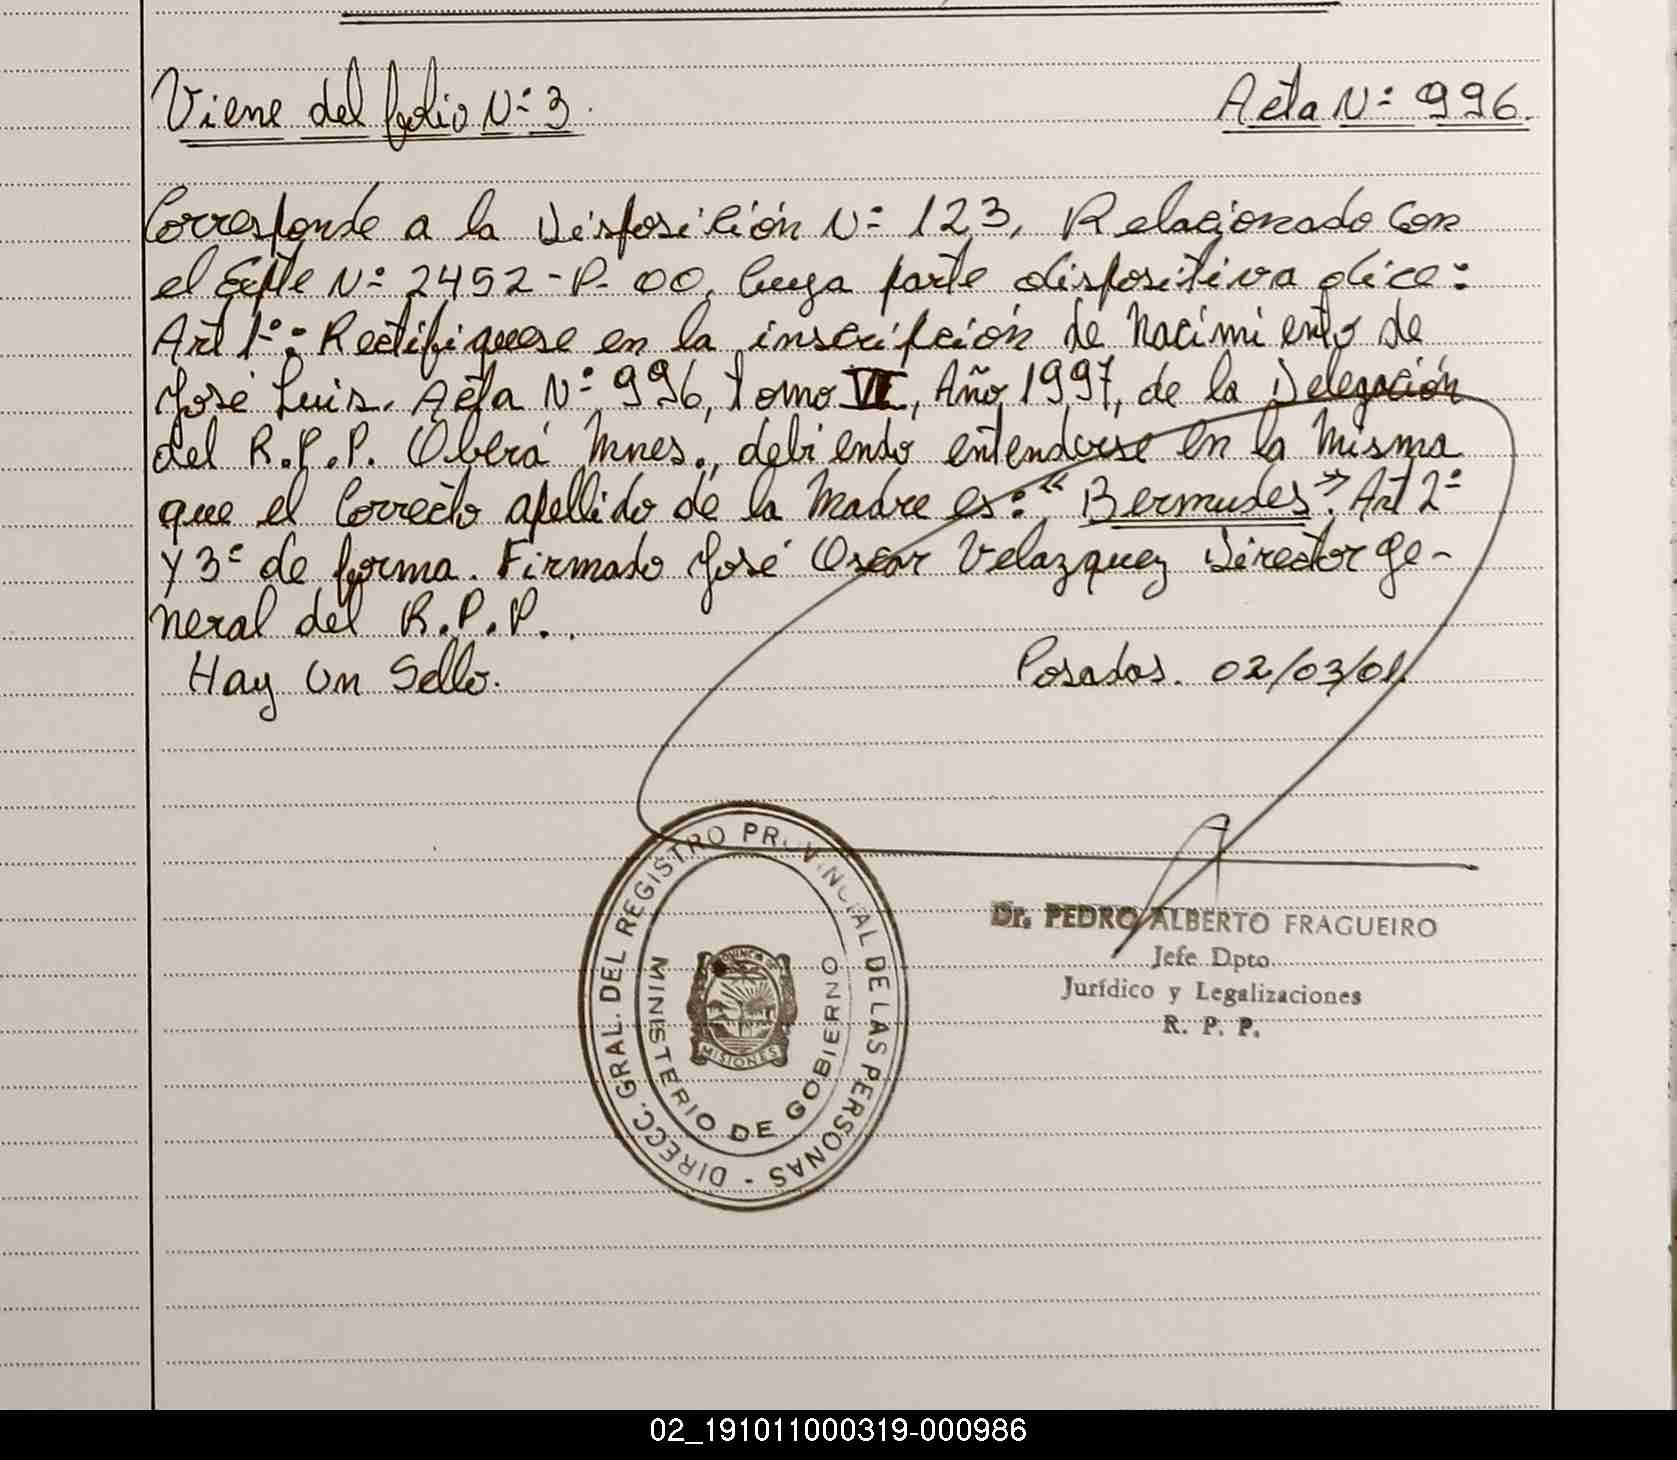 Viene del folio N: 3.
Acta N: 996.
Corresponde a la Disposición N: 123, Relacionado Con
el Expte N: 2452-P-00, Cuya parte dispositiva dice:
Art 1º: Rectifiquese en la inscripción de Nacimiento de
José Luis. Acta N: 996, Tomo VI, Año 1997, de la Delegación
del R.P.P. Oberá Mnes., debiendo entenderse en la Misma
que el Correcto apellido de la Madre es: "Bermudes". Art 2º
Y 3º de forma. Firmado José Oscar Velazquez Director Ge-
neral del R.P.P..
Hay Un Sello.
Posadas. 02/03/01.
DIRECC. GRAL. DEL REGISTRO PROVINCIAL DE LAS PERSONAS -
MINISTERIO DE GOBIERNO
PROVINCIA DE
MISIONES
Dr. PEDRO ALBERTO FRAGUEIRO
Jefe Dpto.
Jurídico y Legalizaciones
R. P. P.
02_191011000319-000986